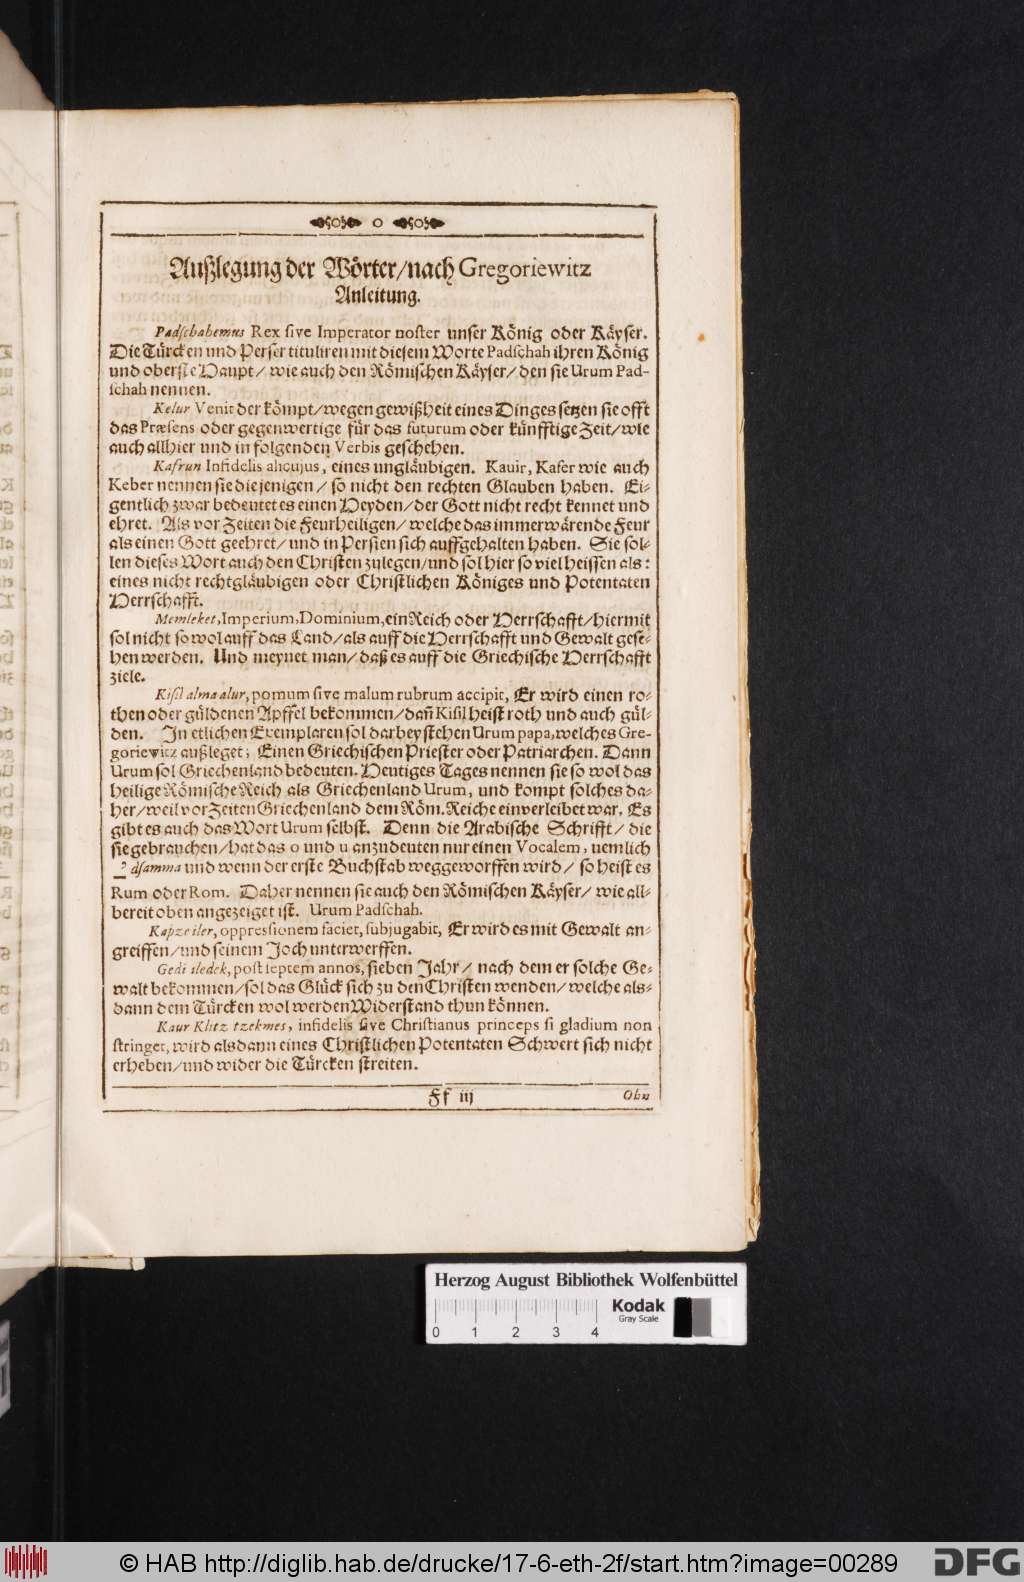 o
Außlegung der Wörter/nach Gregoriewitz
Anleitung.
Padschahemus Rex sive Imperator noster unser König oder Käyser.
Die Türcken und Perser tituliren mit diesem Worte Padschah ihren König
und oberste Haupt/ wie auch den Römischen Käyser/ den sie Urum Pad-
schah nennen.
Kelur Venit der kömpt/wegen gewißheit eines Dinges setzen sie offt
das Præsens oder gegenwertige für das futurum oder künfftige Zeit/wie
auch allhier und in folgenden Verbis geschehen.
Kafrun Infidelis alicujus, eines ungläubigen. Kauir, Kafer wie auch
Keber nennen sie diejenigen/ so nicht den rechten Glauben haben. Ei-
gentlich zwar bedeutet es einen Heyden/der Gott nicht recht kennet und
ehret. Als vor Zeiten die Feurheiligen/ welche das immerwärende Feur
als einen Gott geehret/ und in Persien sich auffgehalten haben. Sie sol-
len dieses Wort auch den Christen zulegen/und sol hier so viel heissen als:
eines nicht rechtgläubigen oder Christlichen Königes und Potentaten
Herrschafft.
Memleket, Imperium, Dominium, ein Reich oder Herrschafft/hiermit
sol nicht so wol auff das Land/als auff die Herrschafft und Gewalt gese-
hen werden. Und meynet man/ daß es auff die Griechische Herrschafft
ziele.
Kisil alma alur, pomum sive malum rubrum accipit, Er wird einen ro-
then oder güldenen Apffel bekommen/dañ Kisil heist roth und auch gül-
den. In etlichen Exemplaren sol darbey stehen Urum papa, welches Gre-
goriewitz außleget; Einen Griechischen Priester oder Patriarchen. Dann
Urum sol Griechenland bedeuten. Heutiges Tages nennen sie so wol das
heilige Römische Reich als Griechenland Urum, und kompt solches da-
her/weil vor Zeiten Griechenland dem Röm. Reiche einverleibet war. Es
gibt es auch das Wort Urum selbst. Denn die Arabische Schrifft/ die
sie gebrauchen/hat das o und u anzudeuten nur einen Vocalem, nemlich
dsamma und wenn der erste Buchstab weggeworffen wird/ so heist es
Rum oder Rom. Daher nennen sie auch den Römischen Käyser/ wie all-
bereit oben angezeiget ist. Urum Padschah.
Kapzeiler, oppressionem faciet, subjugabit, Er wird es mit Gewalt an-
greiffen/und seinem Joch unterwerffen.
Gedi iledek, post septem annos, sieben Jahr/ nach dem er solche Ge-
walt bekommen/sol das Glück sich zu den Christen wenden/welche als-
dann dem Türcken wol werden Widerstand thun können.
Kaur Klitz tzekmes, infidelis sive Christianus princeps si gladium non
stringet, wird alsdann eines Christlichen Potentaten Schwert sich nicht
erheben/und wider die Türcken streiten.
Ff iij
Herzog August Bibliothek Wolfenbüttel
Kodak
Gray Scale
0 1 2 3 4
© HAB http://diglib.hab.de/drucke/17-6-eth-2f/start.htm?image=00289
DFG